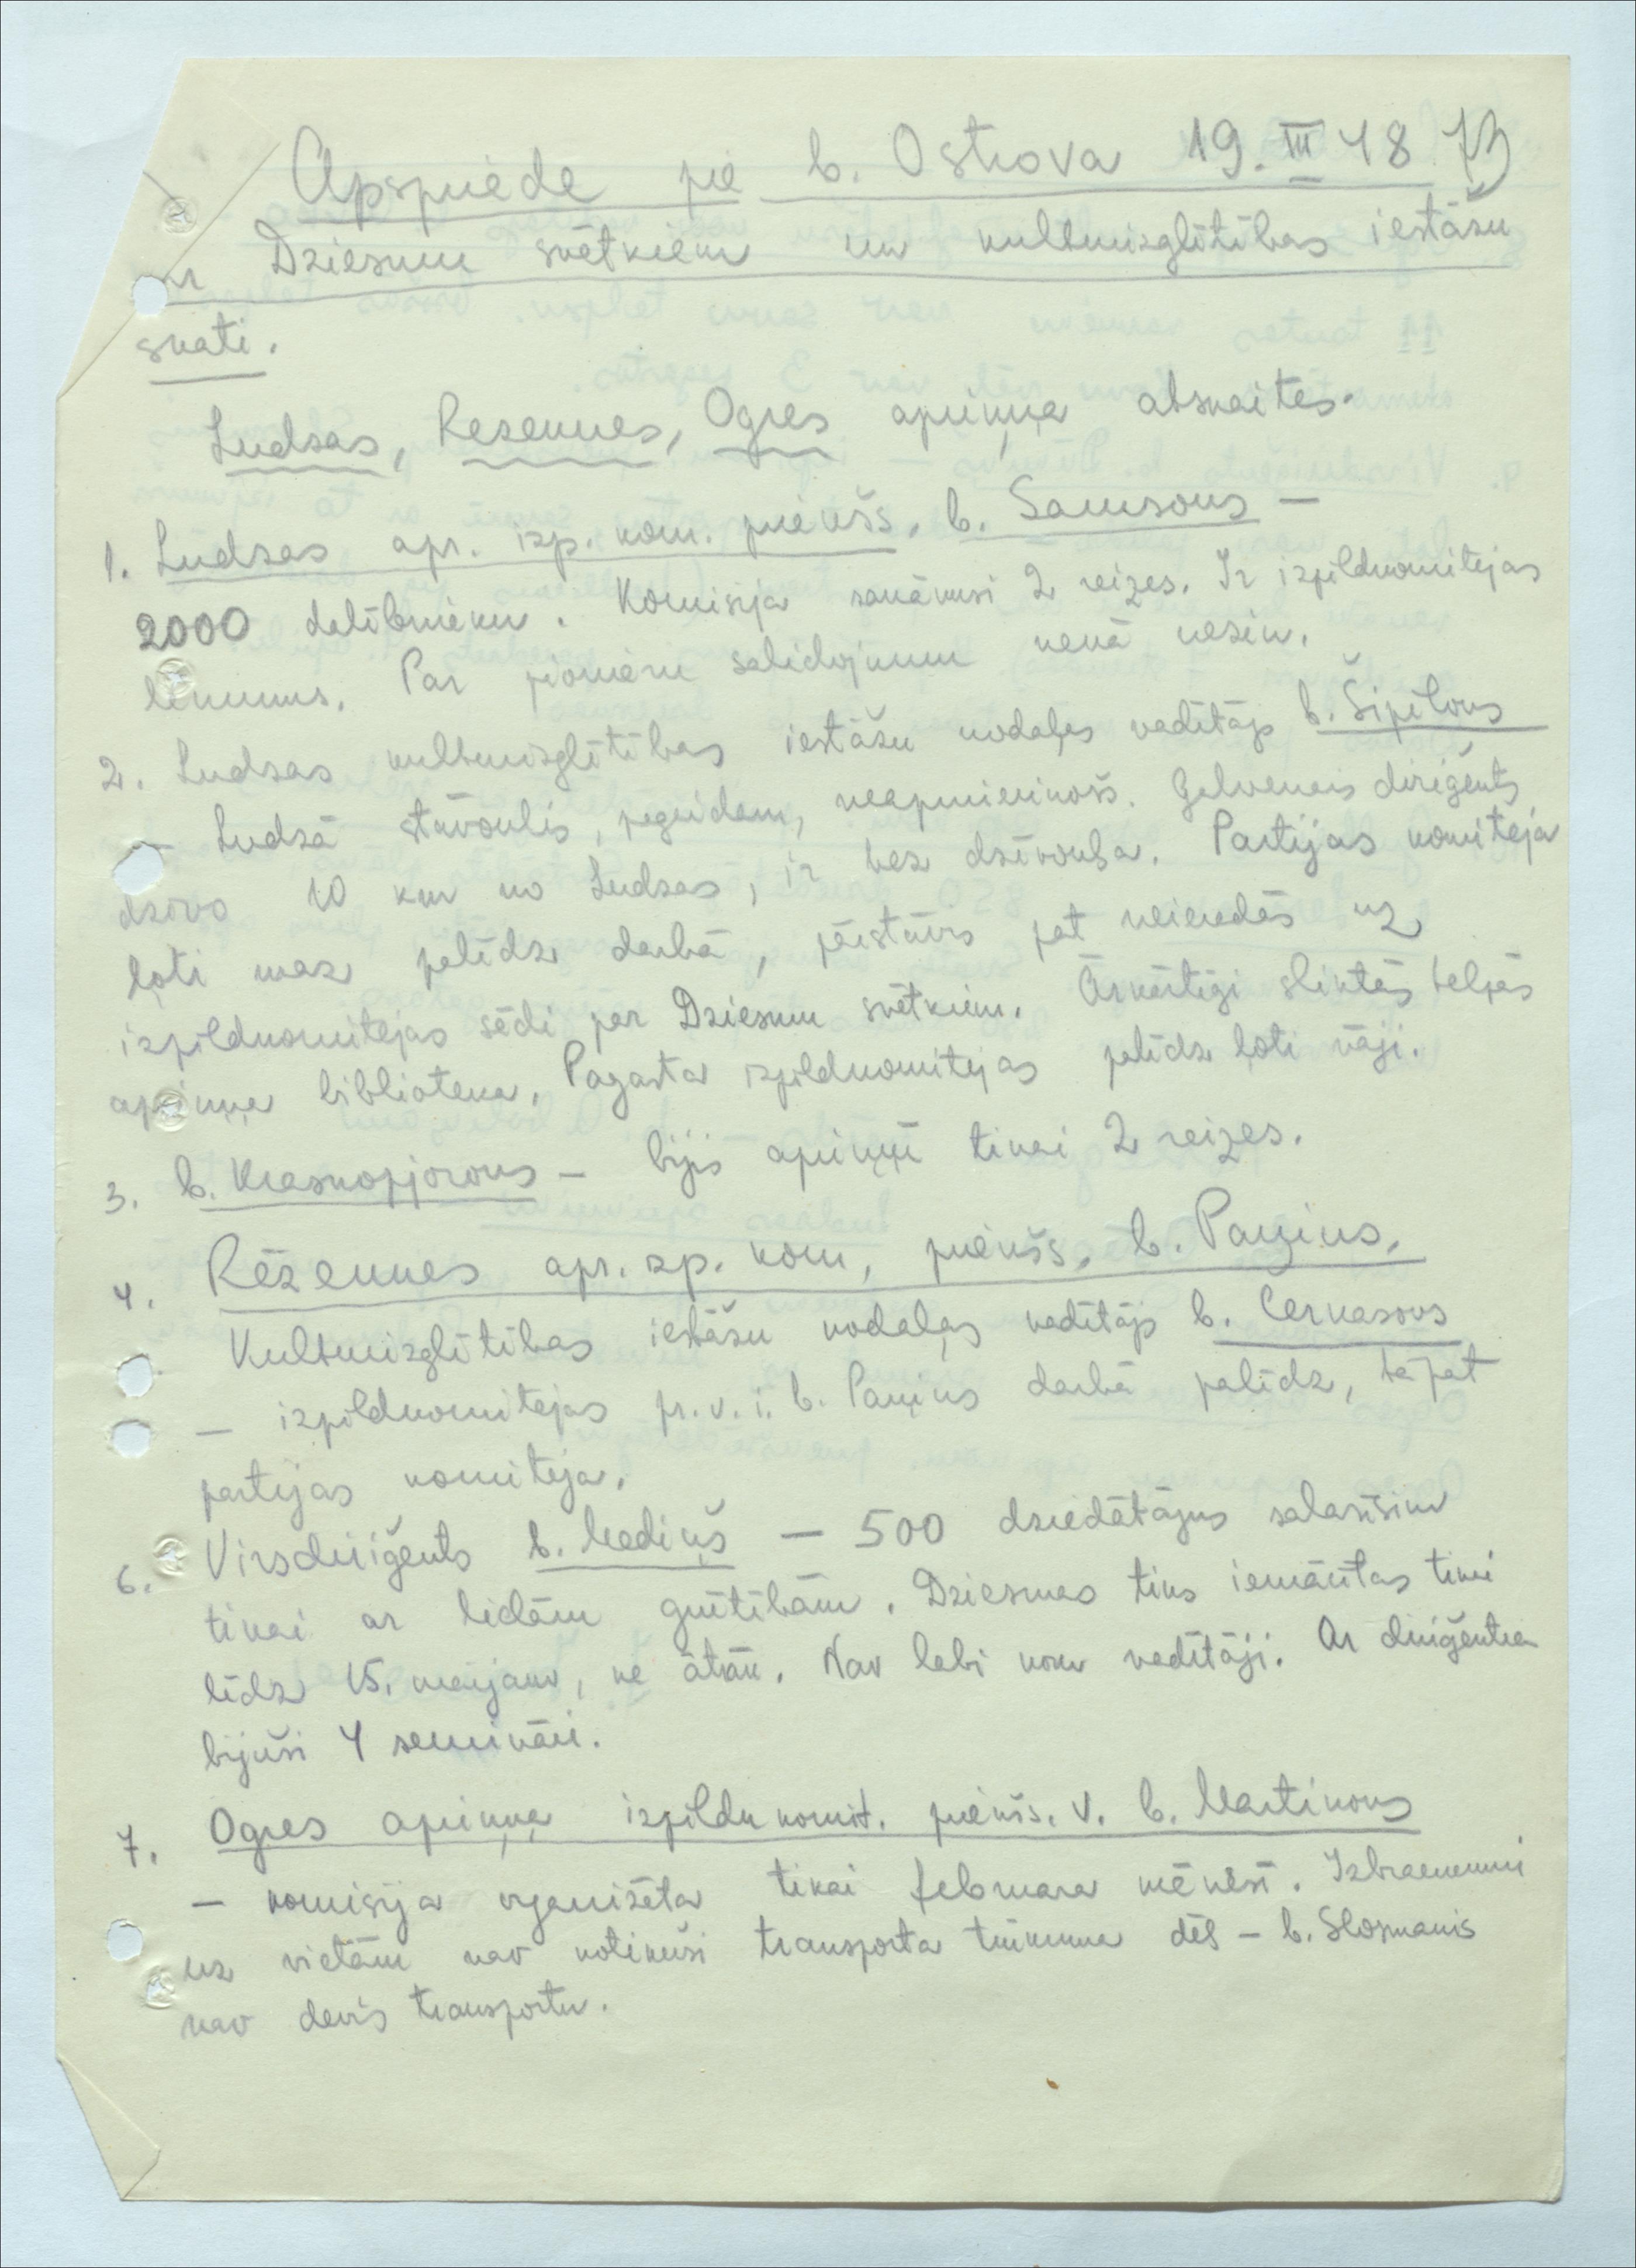 Apspriede pie b. Ostrova 19. III 48 73
ar Dziesmu svētkiem un kultuizglītības iestāžu
skati.
Ludzas, Rezeknes, Ogres apriņķa atskaites.
1. Ludzas apr. izp. kom. priekšs. b. Samsons –
2000 dalībnieku. Komisija sanākusi 2 reizes. Ir izpildkomitejas
lēmums. Par pionieru salidojumu nekā nezin.
2. Ludzas kultuizglītības iestāžu nodaļas vadītājs b. Šipilovs
– Ludzā stāvoklis, pagaidam, neapmierinošs. Galvenais diriģents
dzīvo 10 km no Ludzas, ir bez dzīvokļa. Partijas komiteja
ļoti maz palīdz darbā, pārstāvis pat neieradās uz
izpildkomitejas sēdi par Dziesmu svētkiem. Ārkārtīgi sliktās telpās
apriņķa biblioteka. Pagasta izpildkomitejas palīdz ļoti vāji.
3. b. Krasnopjorovs – bijis apriņķī tikai 2 reizes.
4. Rēzeknes apr. izp. kom, priekšs. b. Paņins.
Kultuizglītības iestāžu nodaļas vadītājs b. Čerkasovs
– izpildkomitejas pr. v. i. b. Paņins darbā palīdz, tāpat
partijas komiteja.
6. Virsdiriģents b. Mediņš – 500 dziedātājus salasīsim
tikai ar lielām grūtībām. Dziesmas tiks iemācītas tikai
līdz 15. maijam, ne ātrāk. Nav labi koru vadītāji. Ar diriģentiem
bijuši 4 semināri.
7. Ogres apriņķa izpildu komit. priekšs. v. b. Martinovs
– komisija organizēta tikai februara mēnesī. Izbraukumi
uz vietām nav notikuši transporta trūkuma dēļ – b. Slosmanis
nav devis transportu.